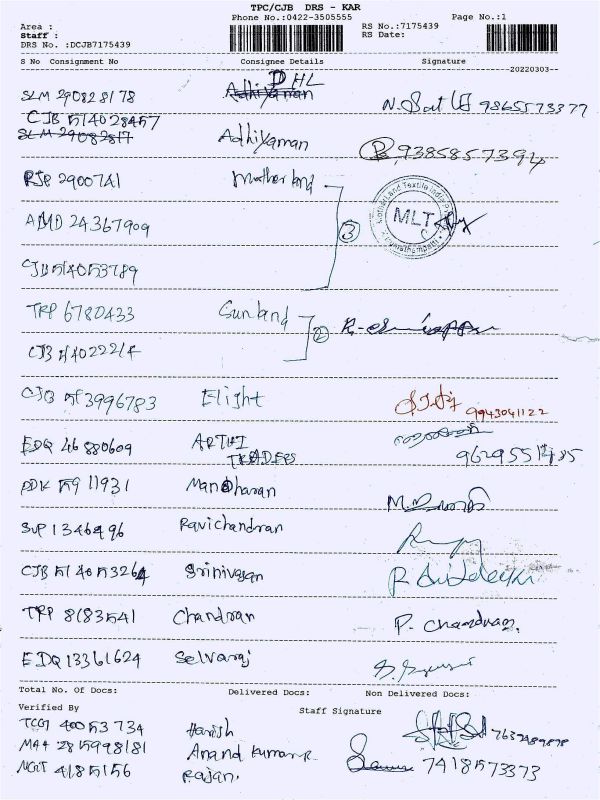 TPC/CJB DRS - KAR
Phone No.:0422-3505555
Page No.:1
Area :
RS No.:7175439
Staff :
RS Date:
DRS No. :DCJB7175439
S No Consignment No Consignee Details Signature
20220303
SLM 290828178 DHL 9865573377
CJB 514028457
SLM 29082817 Adhiyaman 9385857394
RJP 2900741 Motherland
AMD 24367909 3 MLT
CJB 514053789
TRP 6780433 Sunland 2
CJB 5140222/4
CJB 513996783 Elight 9943041122
EDQ 46880609 ARTHI
TRADERS
PDK 15911931 Manoharan
SVP 1346496 Ravichandran
CJB 514053264 Srinivasan
TRP 8183541 Chandran P. Chandran.
EDQ 13361624 Selvaraj
Total No. Of Docs: Delivered Docs: Non Delivered Docs:
Verified By Staff Signature
40053734 Harish
MAA 285998181 Anand Kumar
4185156 Rajan. 7418573373